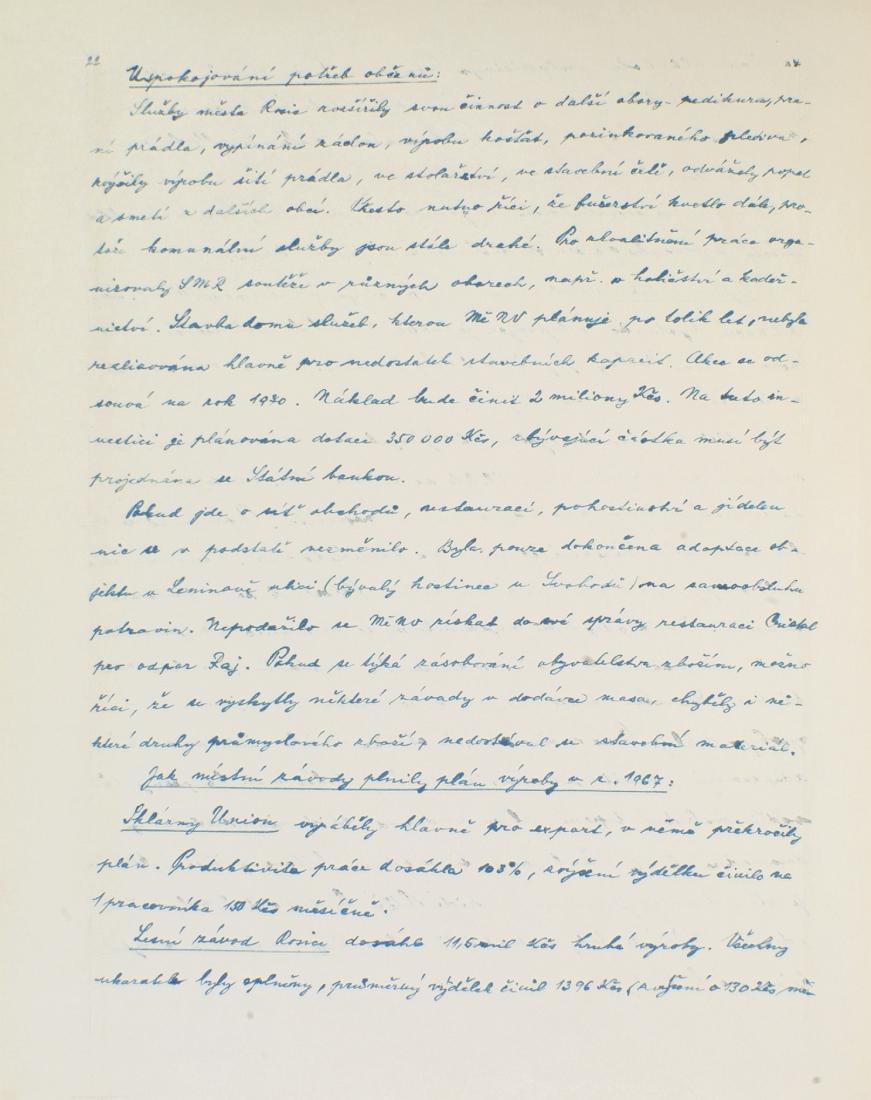 22
Uspokojování potřeb občanů:
Služby města Rosic rozšířily svou činnost o další obory - pedikura, pra-
ní prádla, vypínání záclon, výrobu košťat, pozinkovaného pletiva,
zvýšily výrobu šití prádla, ve stolařství, ve stavební četě, odvážely popel
a smetí z dalších obcí. Přesto nutno říci, že fušerství kvetlo dále, pro-
tože komunální služby jsou stále drahé. Pro zkvalitnění práce orga-
nizovaly SMR soutěže v různých oborech, např. v holičství a kadeř-
nictví. Stavba domu služeb, kterou MěNV plánuje po tolik let, nebyla
realisována hlavně pro nedostatek stavebních kapacit. Akce se od-
souvá na rok 1970. Náklad bude činit 2 miliony Kčs. Na tuto in-
vestici je plánována dotace 350 000 Kčs, zbývající částka musí být
projednána se Státní bankou.
Pokud jde o síť obchodů, restaurací, pohostinství a jídelen
nic se v podstatě nezměnilo. Byla pouze dokončena adaptace ob-
jektu v Leninově ulici (bývalý hostinec u Svobodů) na samoobsluhu
potravin. Nepodařilo se MěNV získat do své správy restauraci
pro odpor Raj. Pokud se týká zásobování obyvatelstva zbožím, možno
říci, že se vyskytly některé závady v dodávce masa, chyběly i ně-
které druhy průmyslového zboží, nedostával se stavební materiál.
Jak místní závody plnily plán výroby v r. 1967:
Sklárny Union vyráběly hlavně pro export, v němž překročily
plán. Produktivita práce dosáhla 103%, zvýšení výdělku činilo na
1 pracovníka 150 Kčs měsíčně.
Lesní závod Rosice dosáhl 11,5 mil Kčs hrubé výroby. Všechny
ukazatele byly splněny, průměrný výdělek činil 1396 Kčs (zvýšení o 130 Kčs měs-